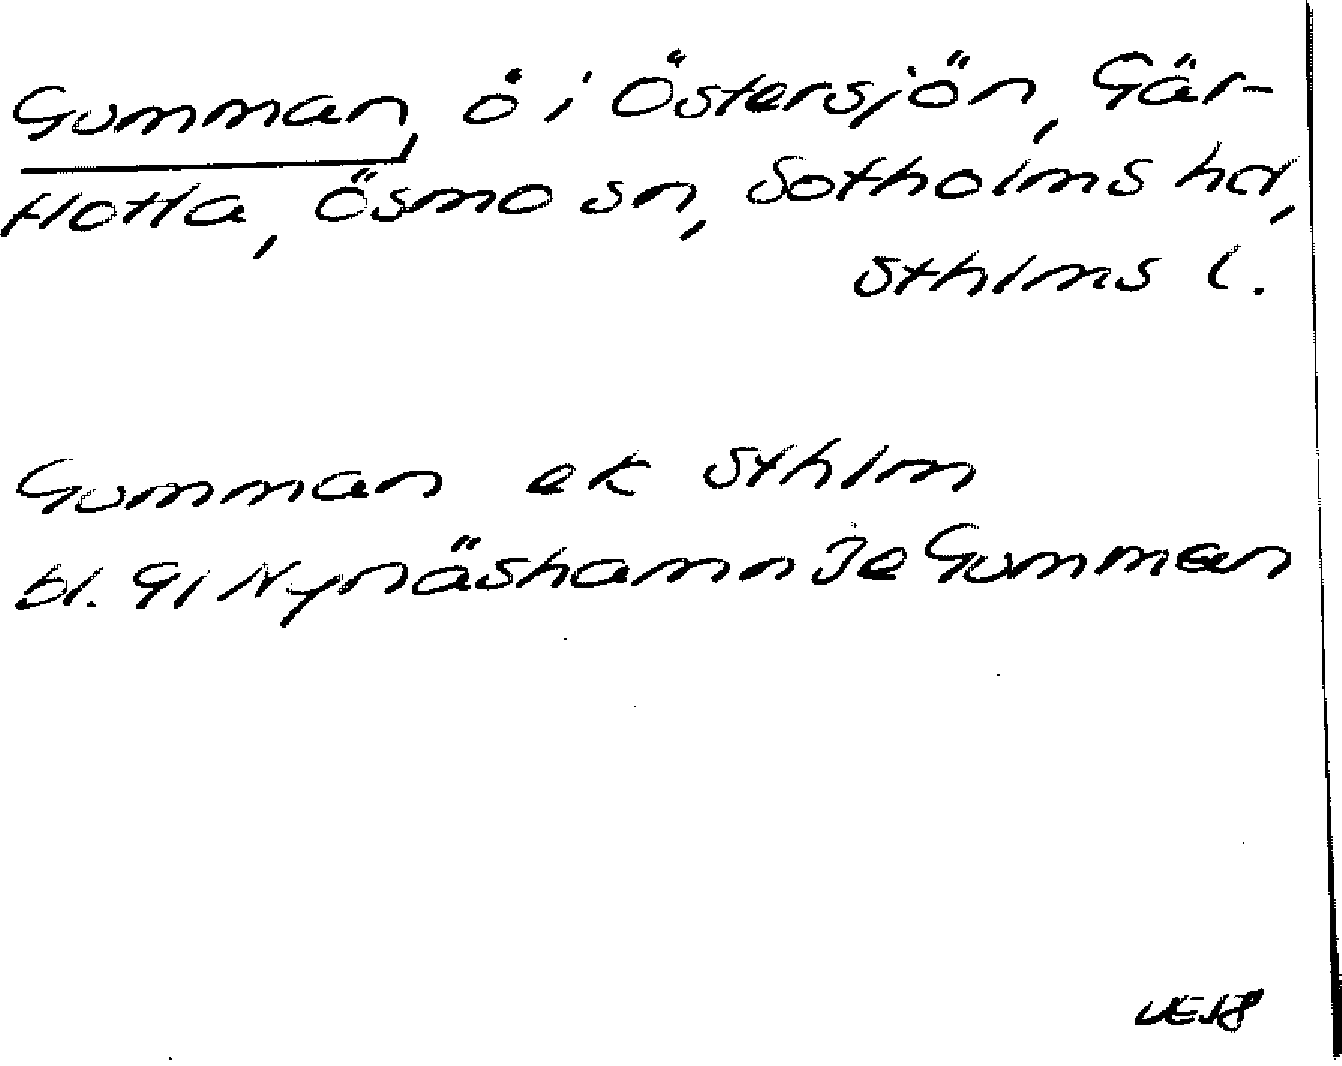 Gumman, ö i Östersjön, Går-
flotta, Ösmo sn, Sotholms hd,
Sthlms l.
Gumman ek Sthlm
bl. 91 Nynäshamn Je Gumman